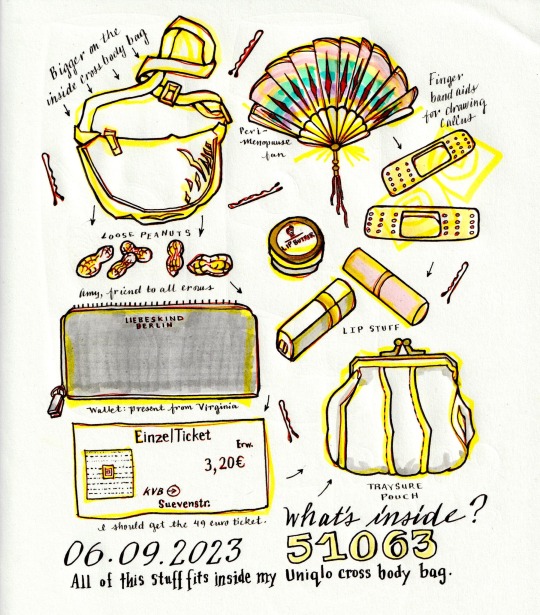 Bigger on the
inside cross body bag
Peri-
menopause
fan
Finger
band aids
for drawing
callus
LOOSE PEANUTS
Amy, friend to all crows
LIP BUTTER
LIP STUFF
LIEBESKIND
BERLIN
Wallet: present from Virginia
EinzelTicket
Erw.
3,20€
KVB
Suevenstr.
I should get the 49 euro ticket.
TRAYSURE
POUCH
what's inside?
06.09.2023
51063
All of this stuff fits inside my Uniqlo cross body bag.